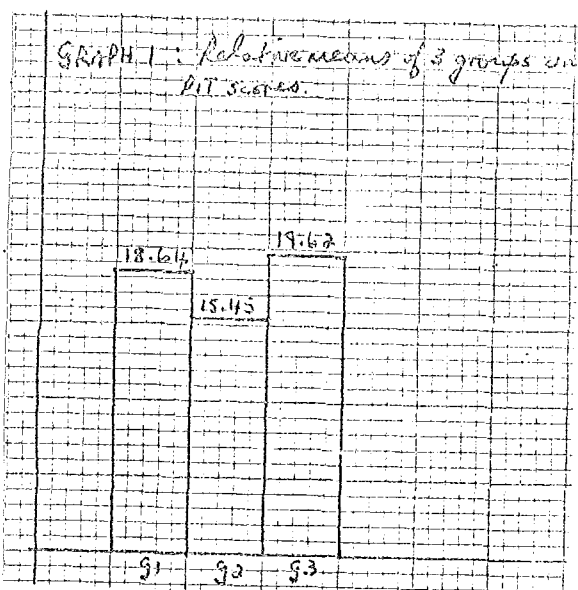 GRAPH 1 : Relative means of 3 groups on
PIT scores.
19.62
18.64
15.45
g1 g2 g3